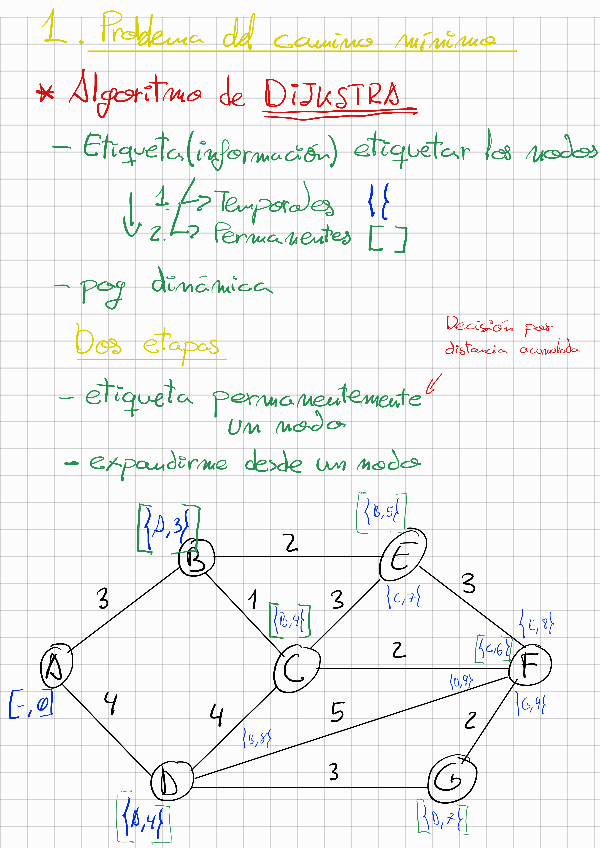 1. Problema del camino mínimo
* Algoritmo de DIJKSTRA
- Etiqueta (información) etiquetar los nodos
1. Temporales { }
2. Permanentes [ ]
- pog dinámica
Dos etapas
Decisión por
distancia acumulada
- etiqueta permanentemente
un nodo
- expandirme desde un nodo
[{A,3}]
[{B,5}]
B
2
E
3
1
3
{C,7}
3
[{B,4}]
{E,8}
A
C
2
[{C,6}]
F
[-,0]
4
4
5
{D,9}
{G,9}
{D,8}
2
D
3
G
[{A,4}]
[{D,7}]